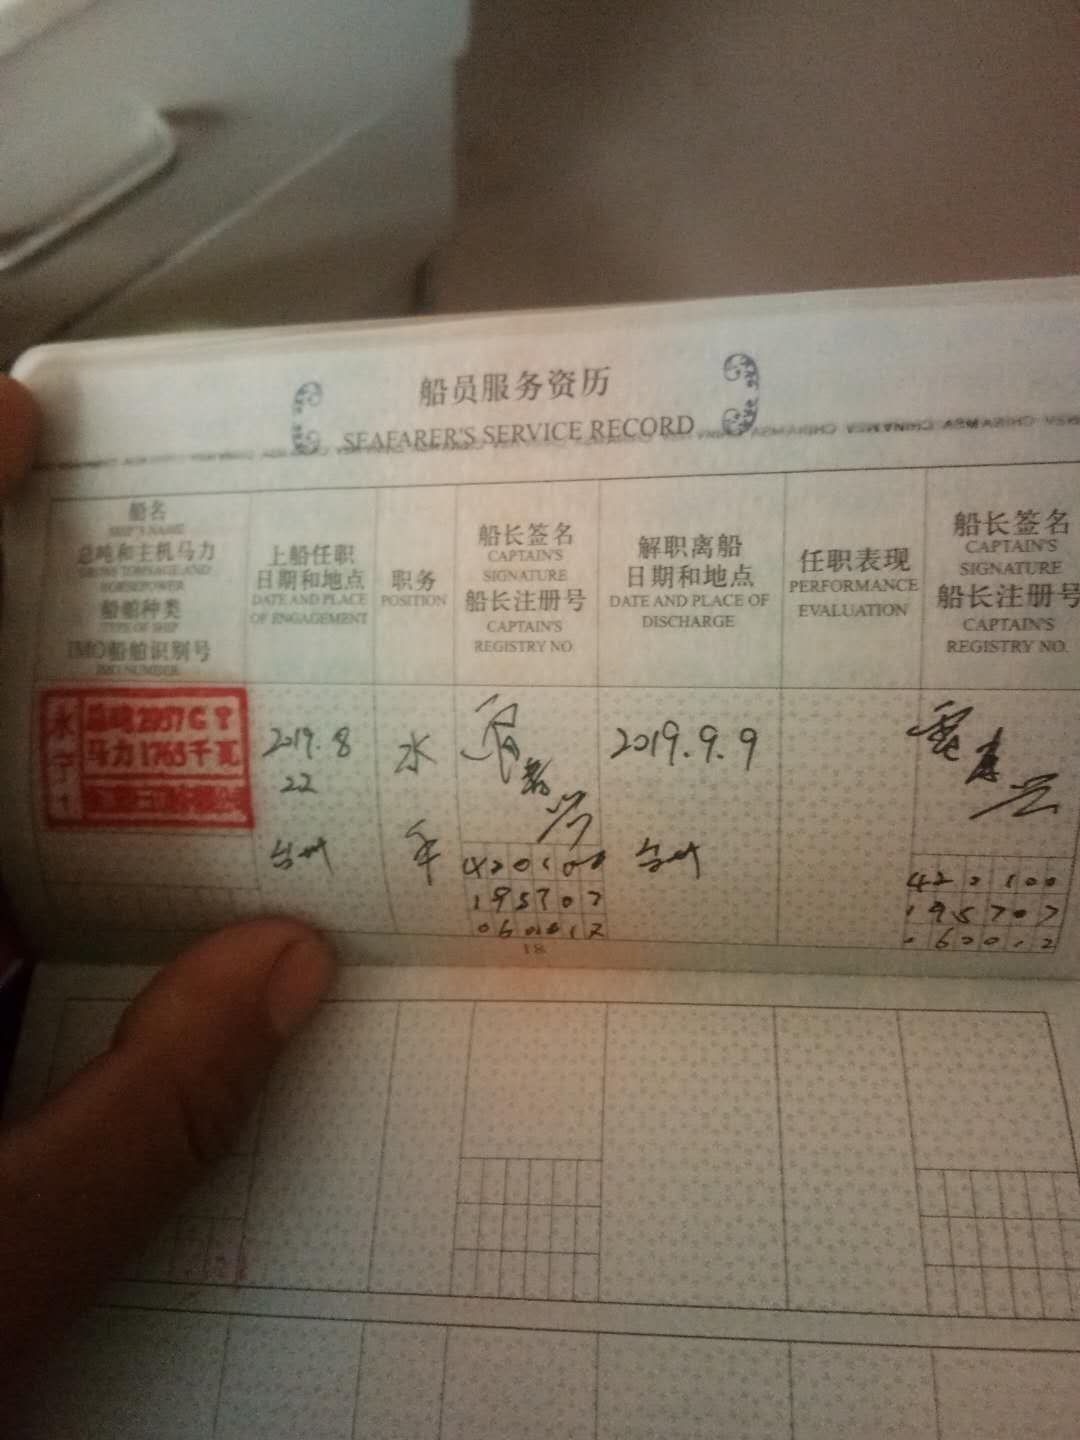 船员服务资历
SEAFARER'S SERVICE RECORD
船名
SHIP'S NAME
总吨和主机马力
GROSS TONNAGE AND
HORSEPOWER
船舶种类
TYPE OF SHIP
IMO船舶识别号
IMO NUMBER
上船任职
日期和地点
DATE AND PLACE
OF ENGAGEMENT
职务
POSITION
船长签名
CAPTAIN'S
SIGNATURE
船长注册号
CAPTAIN'S
REGISTRY NO.
解职离船
日期和地点
DATE AND PLACE OF
DISCHARGE
任职表现
PERFORMANCE
EVALUATION
船长签名
CAPTAIN'S
SIGNATURE
船长注册号
CAPTAIN'S
REGISTRY NO.
总吨2057GT
马力1765千瓦
2019.8
22
台州
水
手
420100
195707
060012
2019.9.9
台州
420100
195707
060012
18